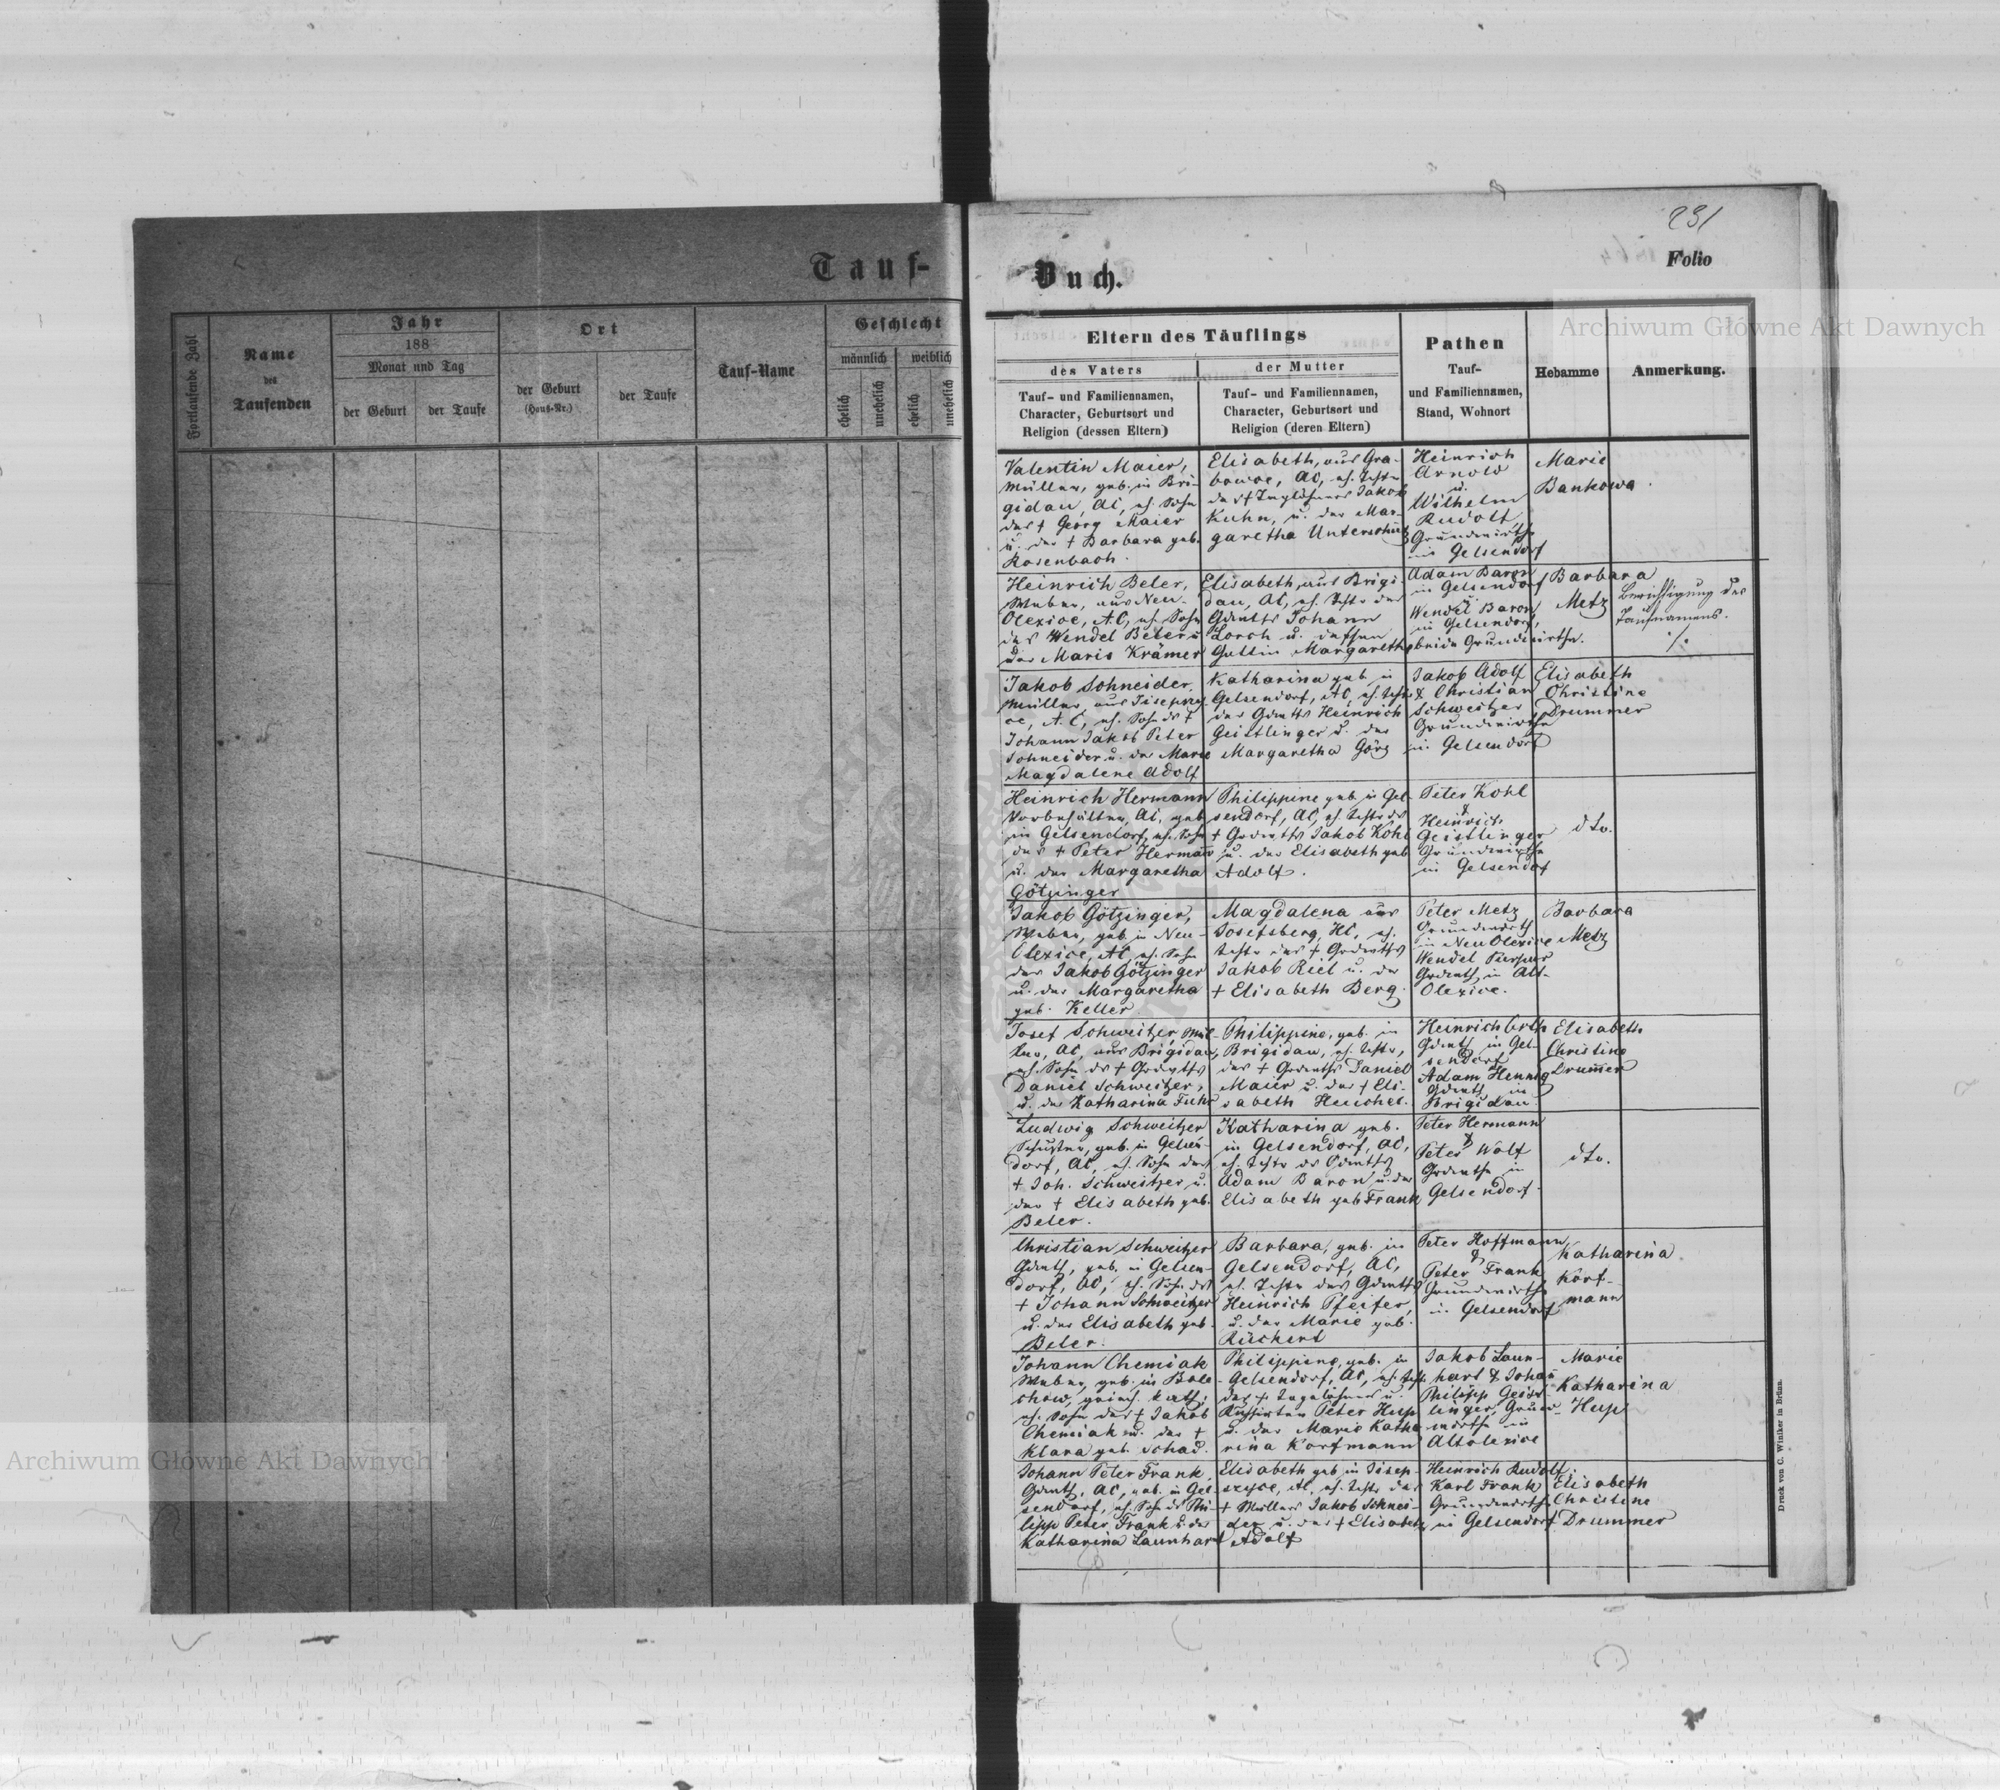 231
Tauf-
Buch.
Folio
Archiwum Główne Akt Dawnych
Fortlaufende Zahl
Name
des
Taufenden
Jahr
188
Monat und Tag
der Geburt
der Taufe
Ort
der Geburt
(Haus-Nr.)
der Taufe
Tauf-Name
Geschlecht
männlich
weiblich
ehelich
unehelich
ehelich
unehelich
Eltern des Täuflings
des Vaters
Tauf- und Familiennamen,
Character, Geburtsort und
Religion (dessen Eltern)
der Mutter
Tauf- und Familiennamen,
Character, Geburtsort und
Religion (deren Eltern)
Pathen
Tauf-
und Familiennamen,
Stand, Wohnort
Hebamme
Anmerkung.
Valentin Maier,
Müller, geb. in Bri-
gidau, AC, eh. Sohn
des † Georg Maier
u. der † Barbara geb.
Rosenbach.
Elisabeth, aus Gra-
bowce, AC, eh. Tochter
des † Taglöhners Jakob
Kuhn, u. der Mar-
garetha Unterschütz
Heinrich
Arnold
u.
Wilhelm
Rudolf
Grundwirthe
in Gelsendorf
Marie
Bankowa.
Heinrich Beler,
Weber, aus Neu-
Olexice, A.C, eh. Sohn
des Wendel Beler u
der Marie Krämer
Elisabeth, aus Brigi-
dau, AC, eh. Tochter des
Gdwths Johann
Lorch u. dessen
Gattin Margareth
Adam Baron
in Gelsendorf
u.
Wendel Baron
in Gelsendorf,
beide Grundwirthe.
Barbara
Metz
Berichtigung des
Taufnamens.
./.
Jakob Schneider,
Müller, aus Josepsy-
ce, A.C, eh. Sohn des †
Johann Jakob Peter
Schneider u. der Marie
Magdalene Adolf
Katharina geb. in
Gelsendorf, AC, eh. Tochter
des Gdwths Heinrich
Geistlinger u. der
Margaretha Görz
Jakob Adolf
& Christian
Schweitzer
Grundwirthe
in Gelsendorf
Elisabeth
Christine
Drummer
Heinrich Hermann
Vorbehälter, AC, geb
in Gelsendorf, eh. Sohn
des † Peter Hermann
u. der Margaretha
Götzinger
Philippine geb. in Gel-
sendorf, AC, eh. Tochter des
† Grdwths Jakob Kohl
u. der Elisabeth geb
Adolf.
Peter Kohl
&
Heinrich
Geistlinger
Grundwirthe
in Gelsendorf
dto.
Jakob Götzinger,
Weber, geb. in Neu-
Olexice, AC, eh. Sohn
des Jakob Götzinger
u. der Margaretha
geb. Keller
Magdalena aus
Josefsberg, HC, eh.
Tochter des † Grdwths
Jakob Riel u. der
† Elisabeth Berg.
Peter Metz
Grundwirth
in Neu Olexice
Wendel
Grdwth in Alt-
Olexice.
Barbara
Metz
Josef Schweitzer, Mül-
ler, AC, aus Brigidau,
eh. Sohn des † Grdwths
Daniel Schweitzer,
u. der Katharina Fuhr
Philippine, geb. in
Brigidau, eh. Tochter,
des † Grdwths Daniel
Maier u. der † Eli-
sabeth Heuchel.
Heinrich Orth
Gdwth in Gel-
sendorf
Adam Hennig
Gdwth in
Brigidau
Elisabeth
Christine
Drummer
Ludwig Schweitzer
Schuster, geb. in Gelsen-
dorf, AC, eh. Sohn des
† Joh. Schweitzer, u.
der † Elisabeth geb.
Beler.
Katharina geb.
in Gelsendorf, AC,
eh. Tochter des Gdwths
Adam Baron u. der
Elisabeth geb Frank
Peter Hermann
&
Peter Wolf
Grdwthe in
Gelsendorf.
dto.
Christian Schweitzer
Gdwth, geb. in Gelsen-
dorf, AC, eh. Sohn des
† Johann Schweitzer
u. der Elisabeth geb.
Beler.
Barbara, geb. in
Gelsendorf, AC,
eh. Tochter des Gdwths
Heinrich Pfeifer,
u. der Marie geb.
Rückert
Peter Hoffmann,
&
Peter Frank
Grundwirthe
in Gelsendorf
Katharina
Korf-
mann
Johann Chemiak
Weber, geb. in Bole-
chow, griech. kath,
eh. Sohn des † Jakob
Chemiak u. der †
Klara geb. Schad.
Philippine, geb. in
Gelsendorf, AC, eh. Tocht.
des † Tagelöhners u.
Peter Hup
u. der Marie Katha-
rina Korfmann
Jakob Laun-
hart & Johan
Philipp Geist-
linger, Grund-
wirthe in
Altolexice
Marie
Katharina
Hup
Johann Peter Frank,
Gdwth, AC, geb. in Gel-
sendorf, eh. Sohn des Phi-
lipp Peter Frank u. der
Katharina Launhart
Elisabeth geb. in Josep-
szyce, AC, eh. Tochter des
† Müllers Jakob Schnei-
der u. der † Elisabeth
Adolf
Heinrich Rudolf,
Karl Frank
Grundwirthe
in Gelsendorf
Elisabeth
Christine
Drummer
Druck von C. Winiker in Brünn.
Archiwum Główne Akt Dawnych